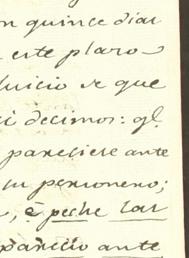 n quince dias
este plazo
Juicio se que
si decimos: ql.
pareciere ante
su personero;
, è peche las
pareciò ante